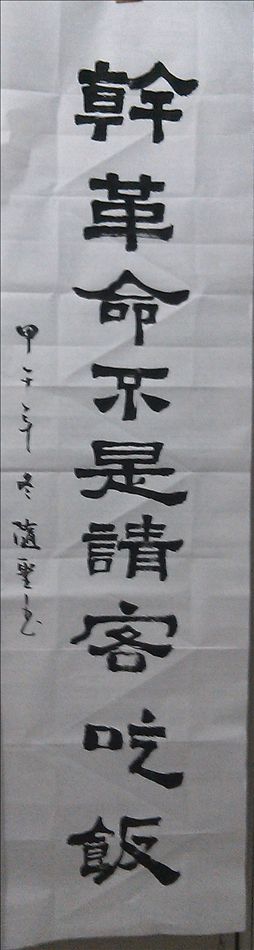 幹革命不是請客吃飯
甲午年冬蘊聖书